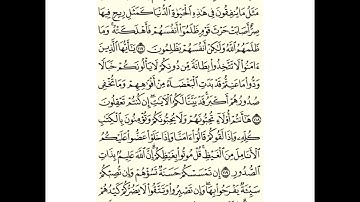 مَثَلُ مَا يُنفِقُونَ فِي هَٰذِهِ الْحَيَوٰةِ الدُّنْيَا كَمَثَلِ رِيحٍ فِيهَا
صِرٌّ أَصَابَتْ حَرْثَ قَوْمٍ ظَلَمُوا أَنفُسَهُمْ فَأَهْلَكَتْهُ وَمَا
ظَلَمَهُمُ اللَّهُ وَلَٰكِنْ أَنفُسَهُمْ يَظْلِمُونَ ١١٧ يَٰأَيُّهَا الَّذِينَ
ءَامَنُوا لَا تَتَّخِذُوا بِطَانَةً مِّن دُونِكُمْ لَا يَأْلُونَكُمْ خَبَالًا
وَدُّوا مَا عَنِتُّمْ قَدْ بَدَتِ الْبَغْضَاءُ مِنْ أَفْوَٰهِهِمْ وَمَا تُخْفِي
صُدُورُهُمْ أَكْبَرُ قَدْ بَيَّنَّا لَكُمُ الْءَايَٰتِ إِن كُنتُمْ تَعْقِلُونَ
١١٨ هَٰأَنتُمْ أُولَاءِ تُحِبُّونَهُمْ وَلَا يُحِبُّونَكُمْ وَتُؤْمِنُونَ بِالْكِتَٰبِ
كُلِّهِ وَإِذَا لَقُوكُمْ قَالُوا ءَامَنَّا وَإِذَا خَلَوْا عَضُّوا عَلَيْكُمُ
الْأَنَامِلَ مِنَ الْغَيْظِ قُلْ مُوتُوا بِغَيْظِكُمْ إِنَّ اللَّهَ عَلِيمٌ بِذَاتِ
الصُّدُورِ ١١٩ إِن تَمْسَسْكُمْ حَسَنَةٌ تَسُؤْهُمْ وَإِن تُصِبْكُمْ
سَيِّئَةٌ يَفْرَحُوا بِهَا وَإِن تَصْبِرُوا وَتَتَّقُوا لَا يَضُرُّكُمْ كَيْدُهُمْ